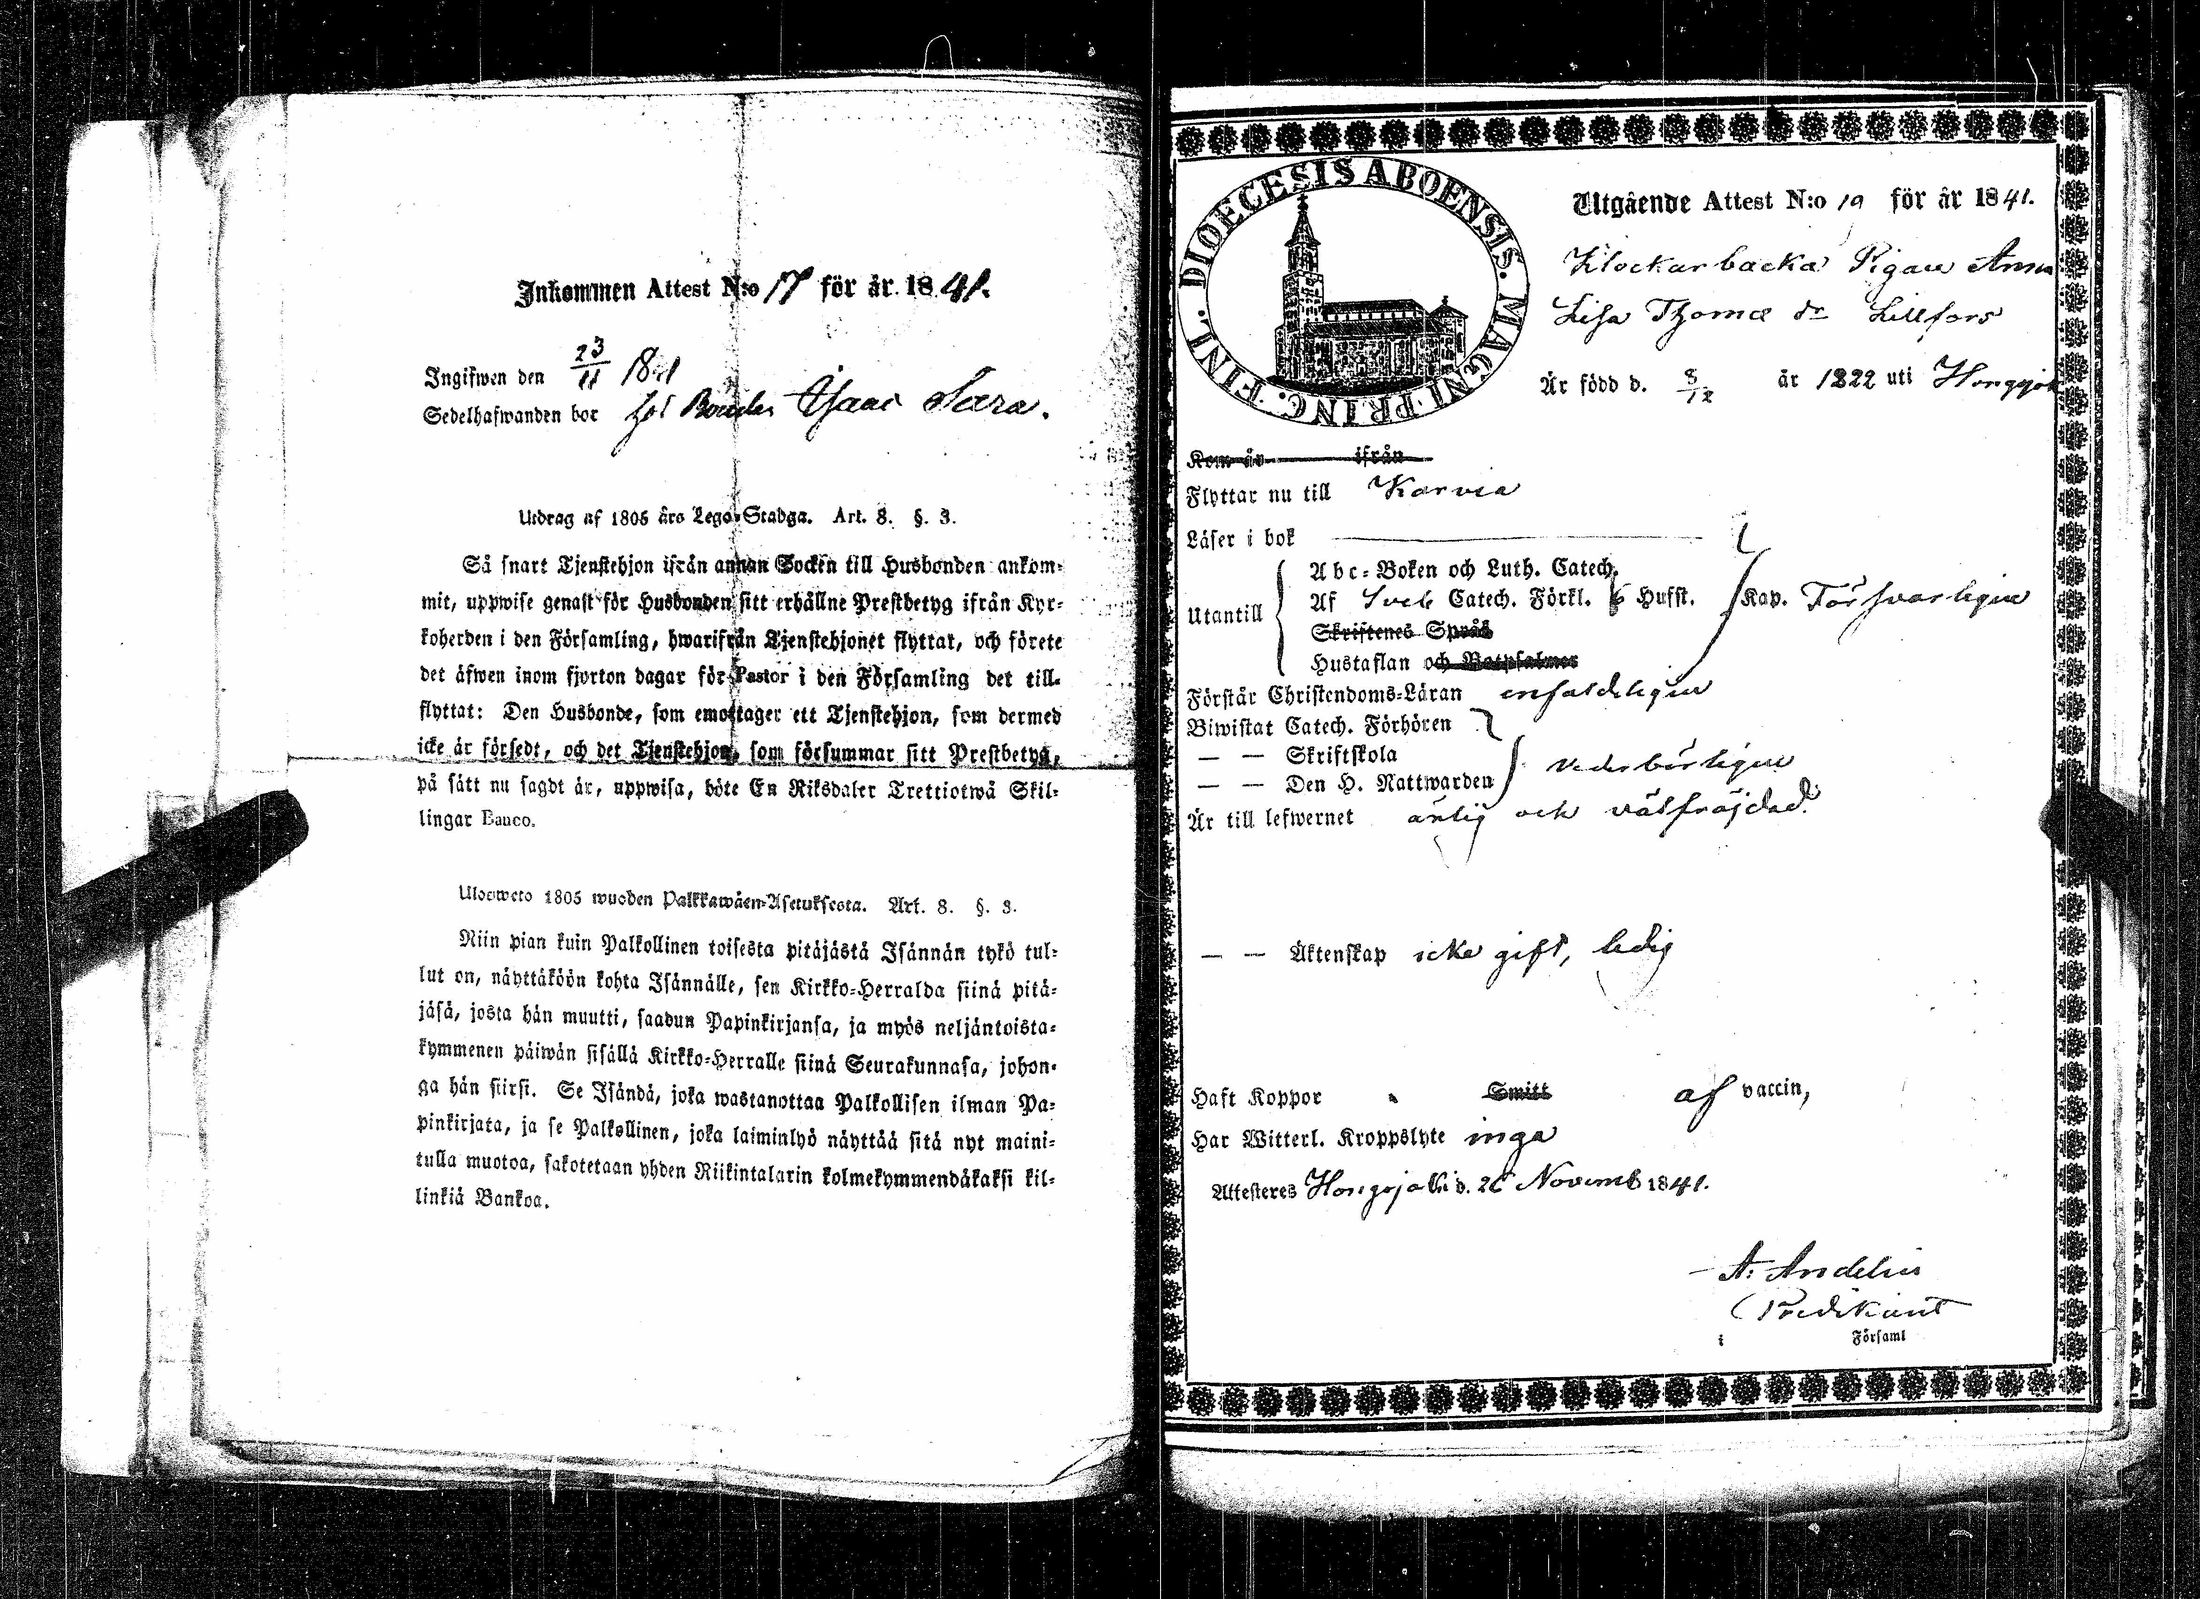 Inkommen Attest N:o 17 för år 1841.
Ingifwen den 23/11 1841
Sedelhafwanden bor hos Bonden Isaac Sara.
Utdrag af 1805 års Lego-Stadga. Art. 8. §. 3.
Så snart Tjenstehjon ifrån annan Socken till Husbonden ankom-
mit, uppwise genast för Husbonden sitt erhållne Prestbetyg ifrån Kyr-
koherden i den Församling, hwarifrån Tjenstehjonet flyttat, och förete
det äfwen inom fjorton dagar för Pastor i den Församling det till-
flyttat: Den Husbonde, som emottager ett Tjenstehjon, som dermed
icke är försedt, och det Tjenstehjon, som försummar sitt Prestbetyg,
på sätt nu sagdt är, uppwisa, böte En Riksdaler Trettiotwå Skil-
lingar Banco.
Ulosweto 1805 wuoden Palkkawäen-Asetuksesta. Art. 8. §. 3.
Niin pian kuin Palkollinen toisesta pitäjästä Isännän tykö tul-
lut on, näyttäköön kohta Isännälle, sen Kirkko-Herralda siinä pitä-
jäsä, josta hän muutti, saadun Papinkirjansa, ja myös neljäntoista-
kymmenen päiwän sisällä Kirkko-Herralle siinä Seurakunnasa, johon-
ga hän siirsi. Se Isändä, joka wastanottaa Palkollisen ilman Pa-
pinkirjata, ja se Palkollinen, joka laiminlyö näyttää sitä nyt maini-
tulla muotoa, sakotetaan yhden Riikintalarin kolmekymmendäkaksi kil-
linkiä Bankoa.
DIOECESIS ABOENSIS. MAGNI PRINC. FINL.
Utgående Attest N:o 19 för år 1841.
Klockarbacka Pigan Anna
Lisa Thomæ dr Lillfors
Är född d. 8/12 år 1822 uti Hongojoki
Kom år ifrån
Flyttar nu till Karvia
Läser i bok
Abc-Boken och Luth. Catech.
Utantill Af Sveb Catech. Förkl. 6 Hufst. Kap. Försvarligen
Skriftenes Språk
Hustaflan och Botpsalmer
Förstår Christendoms-Läran enfaldeligen
Biwistat Catech. Förhören
— — Skriftskola
— — Den H. Nattwarden vederbörligen
Är till lefwernet ärlig och välfräjdad.
— — Äktenskap icke gift, ledig
Haft Koppor Smitt af vaccin,
Har Witterl. Kroppslyte inga
Attesteras Hongojoki d. 26 Novemb 1841.
A: Andelin
Predikant
i Församl